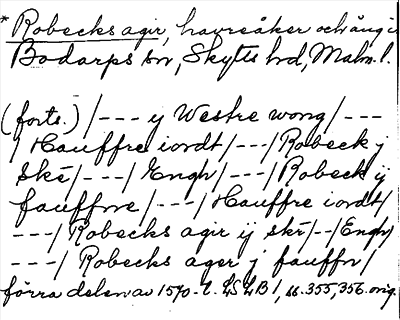 * Robecks agir, havreåker och äng i
Bodarps sn, Skytts hd, Malm. l.
(forts.) /--- y Westre wong /---
/ Hauffre iordt /---/ Robeck j
skē /---/ Engh /---/ Robeck ij
fauffne /---/ Hauffre iordt /
---/ Robecks agir ij skē /--/ Engh /
---/ Robecks ager j fauffn /
förra delen av 1570-t. LSLB 1, ss. 355, 356. orig.